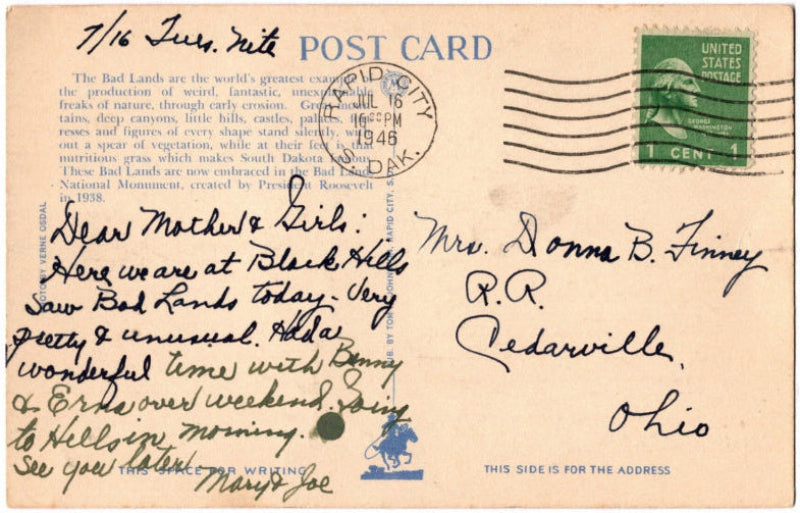 7/16 Tues. Nite
POST CARD
The Bad Lands are the world's greatest
the production of weird, fantastic,
freaks of nature, through early erosion.
tains, deep canyons, little hills, castles, palaces,
resses and figures of every shape stand silently,
out a spear of vegetation, while at their feet is that
nutritious grass which makes South Dakota
These Bad Lands are now embraced in the Bad Land
National Monument, created by President Roosevelt
in 1938.
RAPID CITY
JUL 16
PM
1946
S. DAK.
UNITED
STATES
POSTAGE
GEORGE
WASHINGTON
1 CENT 1
BY VERNE OSDAL
RAPID CITY, S.
Dear Mother & Girls:
Here we are at Black Hills
Saw Bad Lands today - Very
pretty & unusual. Had a
wonderful time with Benny
& Erna over weekend. Going
to Hills in morning.
See you later.
Mary & Joe
Mrs. Donna B. Finney
R.R.
Cedarville,
Ohio
THIS SPACE FOR WRITING
THIS SIDE IS FOR THE ADDRESS